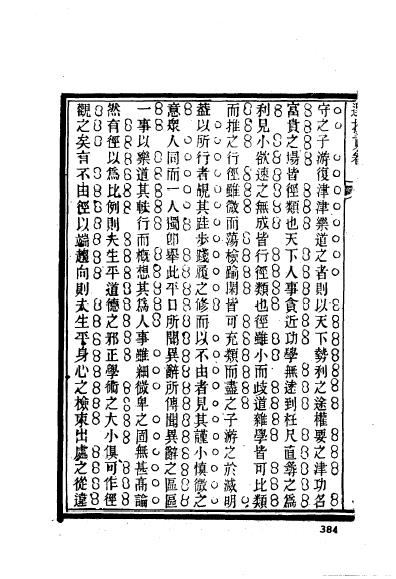 守之子游復津津樂道之者則以天下勢利之途權要之津功名
富貴之場皆徑類也天下人事貪近功學無遠到枉尺直尋之爲
利見小欲速之無成皆行徑類也徑雖小而歧道雜學皆可比類
而推之行徑雖微而蕩檢踰閑皆可充類而盡之子游之於滅明
蓋以所行者覘其跬步踐履之修而以不由者見其謹小慎微之
意衆人同而一人獨卽舉此平日所聞異辭所傳聞異辭之區區
一事以樂道其軼行而概想其爲人事雖細微卑之固無甚高論
然有徑以爲比例則夫生平道德之邪正學術之大小俱可作徑
觀之矣有不由徑以端趨向則夫生平身心之檢束出處之從違
384